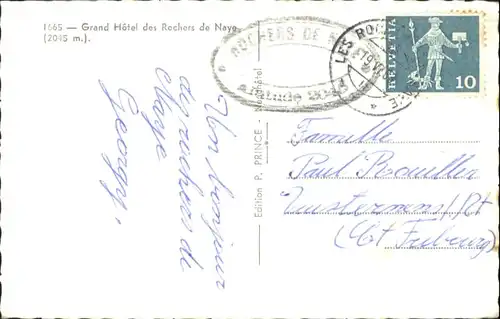 1665 — Grand Hôtel des Rochers de Naye
(2045 m.).
ROCHERS DE
Altitude
LES ROC
HELVETIA
10
Edition P. PRINCE - Neuchâtel
Un bonjour
des rochers de
Naye
Georgy,
Famille
Paul
(Ct Fribourg)